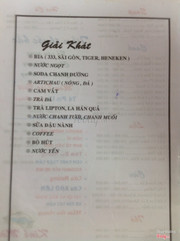 Giải Khát
BIA ( 333, SÀI GÒN, TIGER, HENEKEN )
NƯỚC NGỌT
SODA CHANH ĐƯỜNG
ARTICHAU ( NÓNG, ĐÁ )
CAM VẮT
TRÀ ĐÁ
TRÀ LIPTON, LA HÁN QUẢ
NƯỚC CHANH TƯƠI, CHANH MUỐI
SỮA ĐẬU NÀNH
COFFEE
BÒ HÚT
NƯỚC YẾN